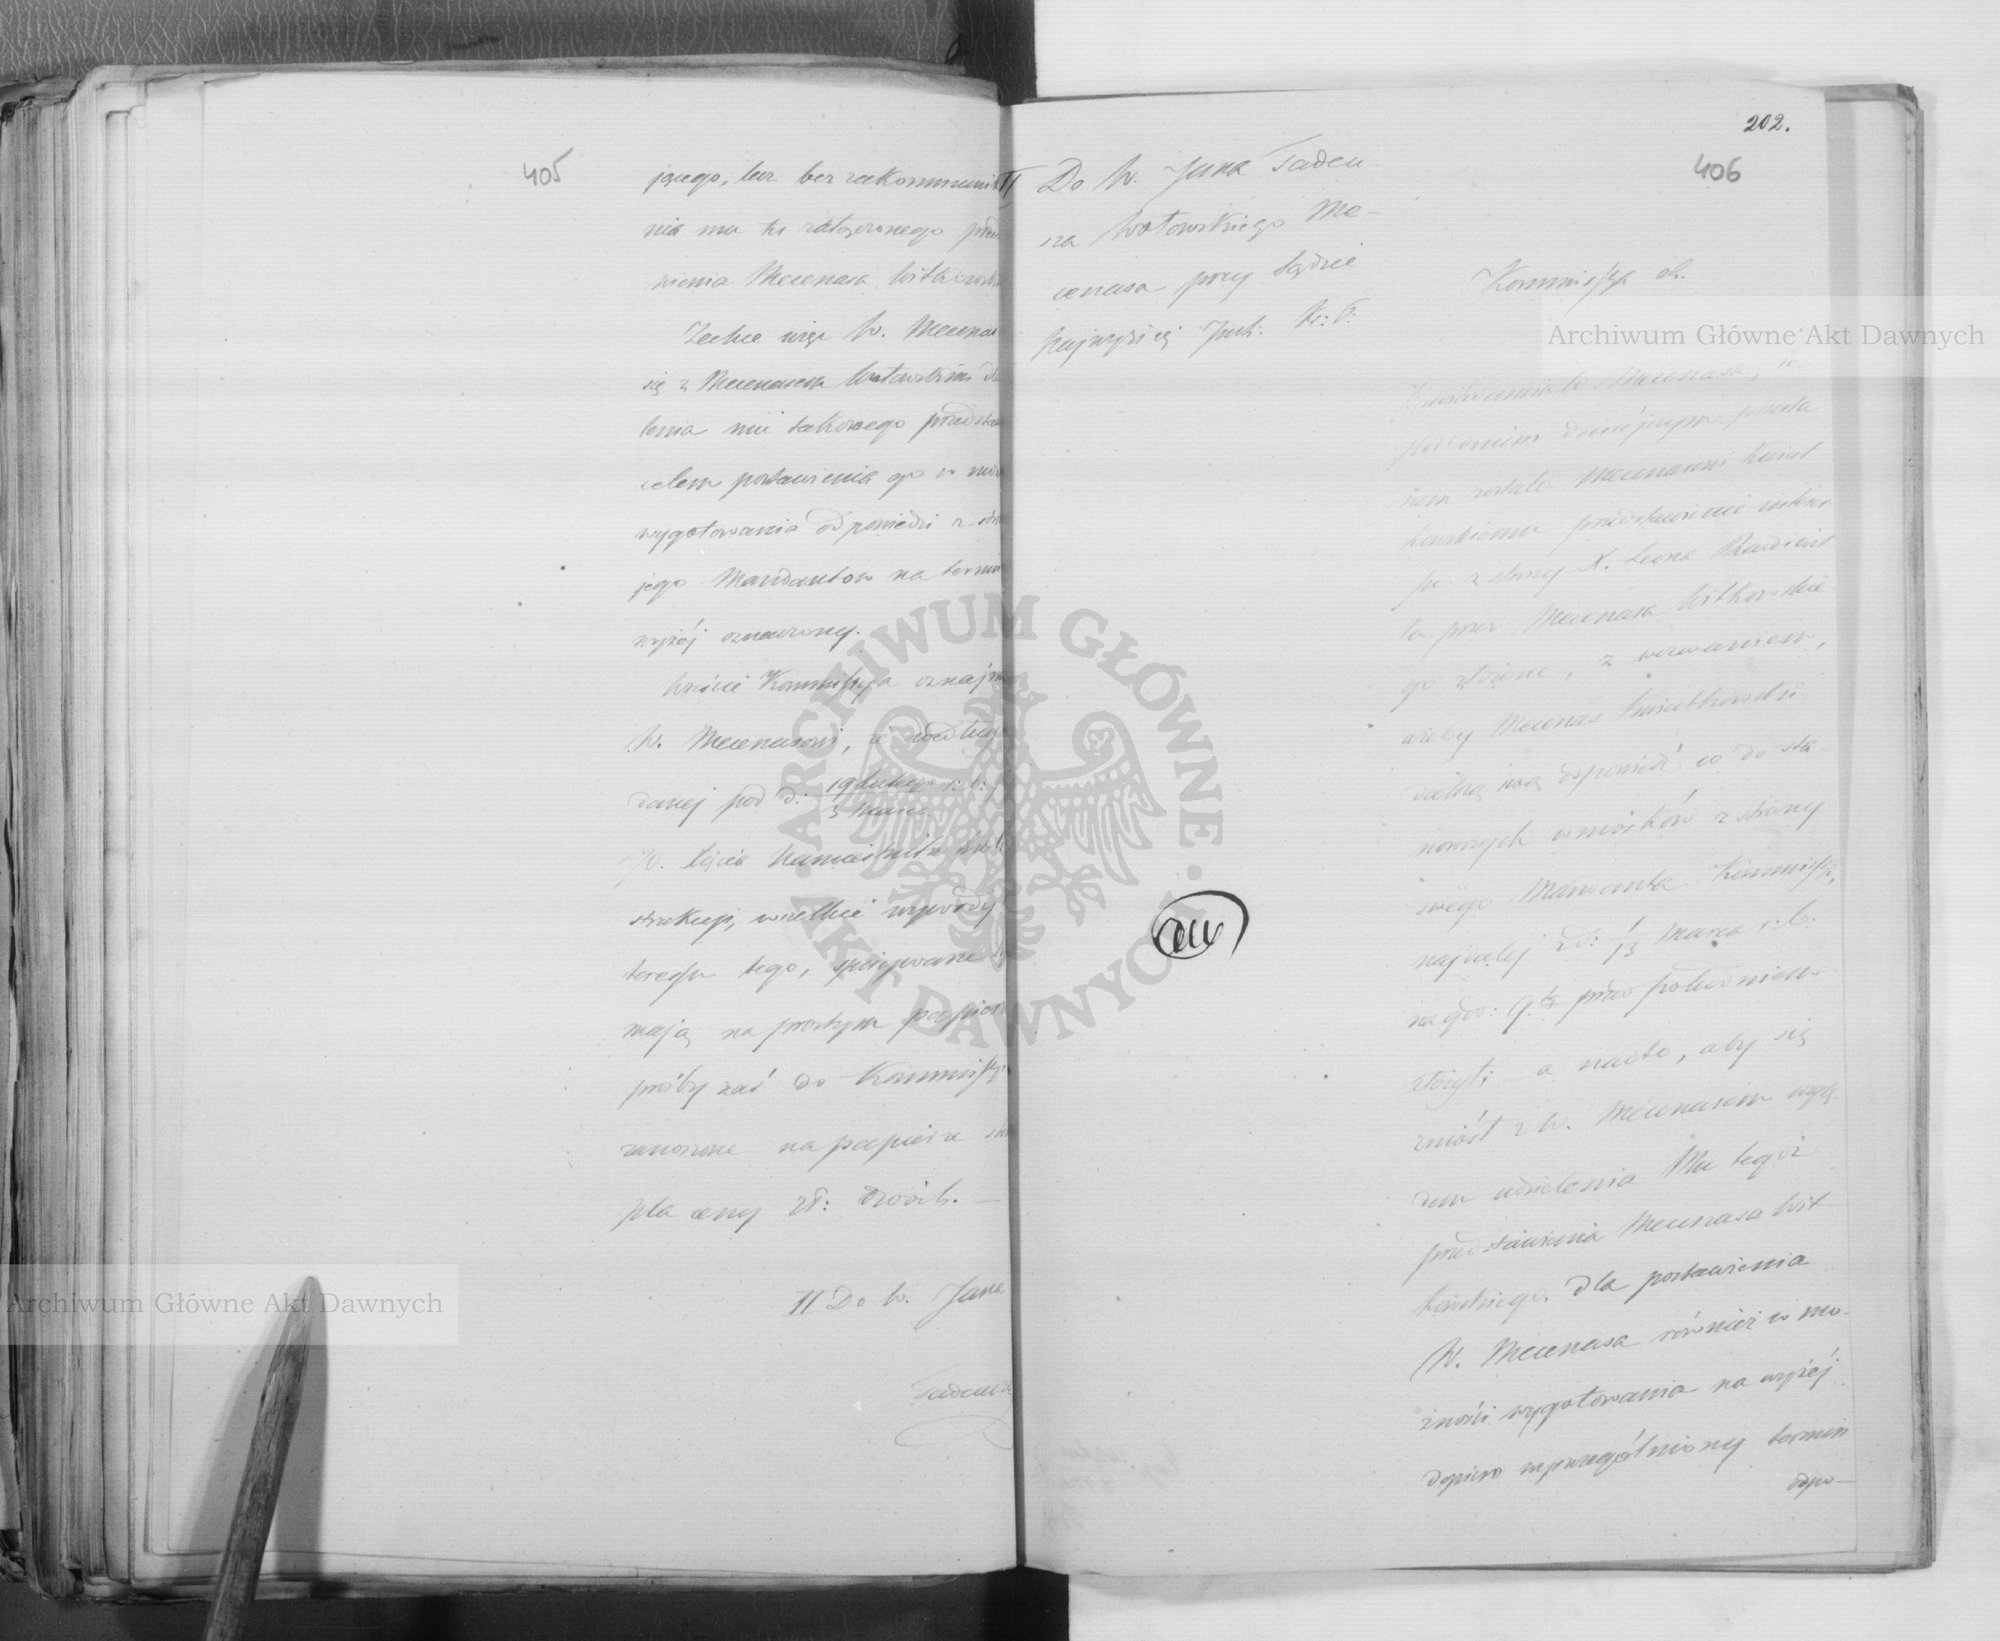 405
jącego, lecz bez zakommuniko
nia mu tu załączonego przed
wienia Mecenasa Witkowski
Zechce więc W. Mecenas
się z Mecenasem Wołowskim dla
lenia mu takowego przedstaw
celem postawienia go w moż
wygotowania odpowiedzi z stro
jego Mandantow na termin
wyżéj oznaczony.
Wreście Kommissya oznajm
W. Mecenasowi, że według
danej pod d: 19 Lutego r: b:
3 Marca
W. Xięcia Namiestnika
strukcji, wszelkie wywody
teressu tego, spisywane
mają na prostym papierze
próby zaś do Kommissyi
zanoszone na papierze
pla ceny zł:
II Do W. Jana
Tadeusza
202.
406
II Do W. Jana Tadeu
sza Wołowskiego Me-
cenasa przy Sądzie
Najwyższéj Inst: Kr: P:
Kommissya etc.
Zawiadamia W. Mecenasa, że
pod dniem dzisiejszym przesła
nem zostało Mecenasowi Kwiat
kowskiemu przedstawienie
z strony X. Leona Radziwił
ła przez Mecenasa Witkowskie-
go złożone, z wezwaniem,
ażeby Mecenas Kwiatkowski
dalszą swą odpowiedź co do sta
nowczych wniosków z strony
swego Mandanta Kommissyi,
najdalej zd: 1/13 Marca r: b:
na god: 9.tą przed południem
złożył; a nadto, aby się
zniósł z W. Mecenasem wzglę-
dem udzielenia Mu tegoż
przedstawienia Mecenasa Wit
kowskiego. dla postawienia
W. Mecenasa również w mo-
żności wygotowania na wyżéj
dopiero wyszczególniony termin
odpo-
Archiwum Główne Akt Dawnych
Archiwum Główne Akt Dawnych
ARCHIWUM GŁÓWNE · AKT DAWNYCH ·